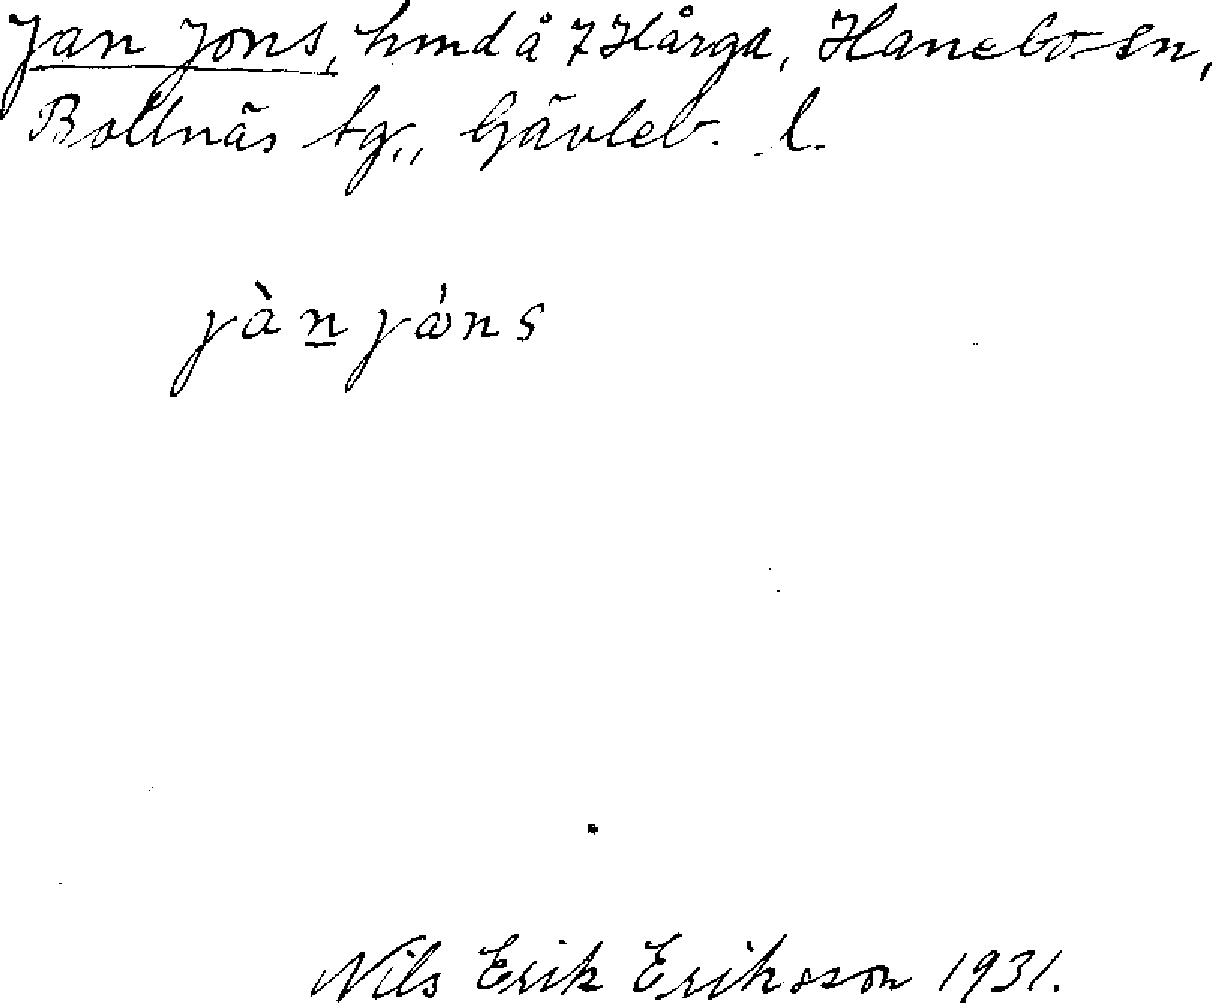 Jan Jons, hmd å 7 Hårga, Hanebo sn,
Bollnäs tg., Gävleb. l.
jànjώns
Nils Erik Eriksson 1931.